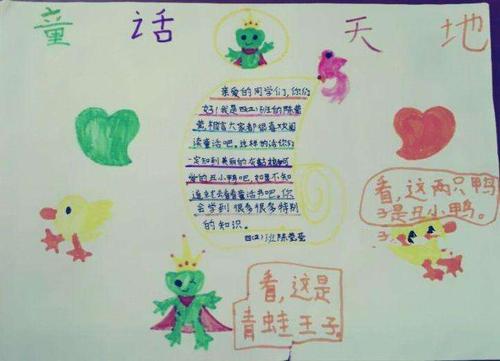 童话天地
亲爱的同学们,你们
好!我是四(2)班的陈莹
莹,相信大家都很喜欢阅
读童话吧。这样的话你们
一定知道美丽的灰姑娘,可
爱的丑小鸭吧,如果不知
道就去看看童话书吧。你
会学到很多很多特别
的知识。
四(2)班陈莹莹
看,这两只鸭
子是丑小鸭。
看,这是
青蛙王子